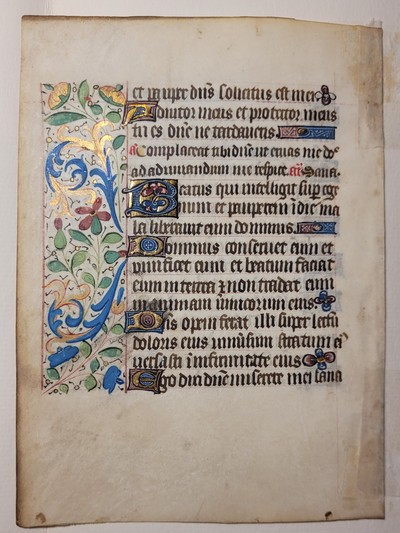 et pauper dñs solicitus est mei
Adiutor meus et protector meus
tu es dñe ne tardaveris.
Complaceat tibi dñe ut eruas me dñe
ad adiuvandum me respice. añ Sana.
Beatus qui intelligit super ege
num et pauperem ĩ die ma
la liberavit eum dominus.
Dominus conservet eum et
vivificet eum et beatum faciat
eum in terra ⁊ non tradat eum
in animam inimicorum eius
Dñs opem ferat illi super lectũ
doloris eius universum stratum ei⁹
versasti ĩ infirmitate eius
Ego dixi dñe miserere mei sana